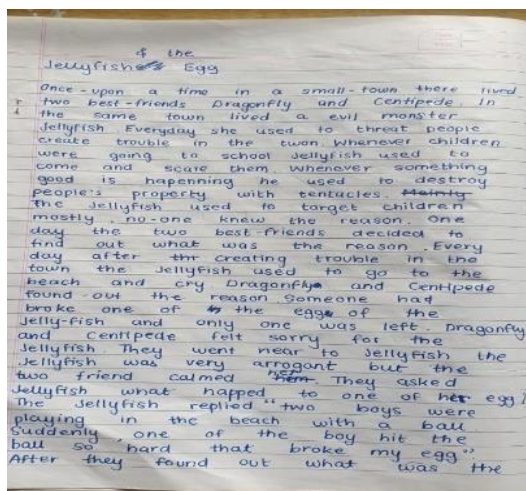 & the
Jellyfish Egg
Once-upon a time in a small-town there lived
two best-friends Dragonfly and Centipede. In
the same town lived a evil monster
Jellyfish Everyday she used to threat people
create trouble in the twon. Whenever children
were going to school Jellyfish used to
come and scare them. Whenever something
good is happenning he used to destroy
people's property with tentacles. Mainly
The Jellyfish used to target children
mostly. no-one knew the reason. One
day the two best-friends decided to
find out what was the reason. Every
day after thr creating trouble in the
town the Jellyfish used to go to the
beach and cry Dragonfly and Centipede
found-out the reason. Someone had
broke one of the eggs of the
Jelly-fish and only one was left. Dragonfly
and Centipede felt sorry for the
Jellyfish. They went near to Jellyfish the
Jellyfish was very arrogant but the
two friend calmed her. They asked
Jellyfish what happed to one of her egg?
The Jellyfish replied "two boys were
playing in the beach with a ball
Suddenly, one of the boy hit the
ball so hard that broke my egg".
After they found out what was the